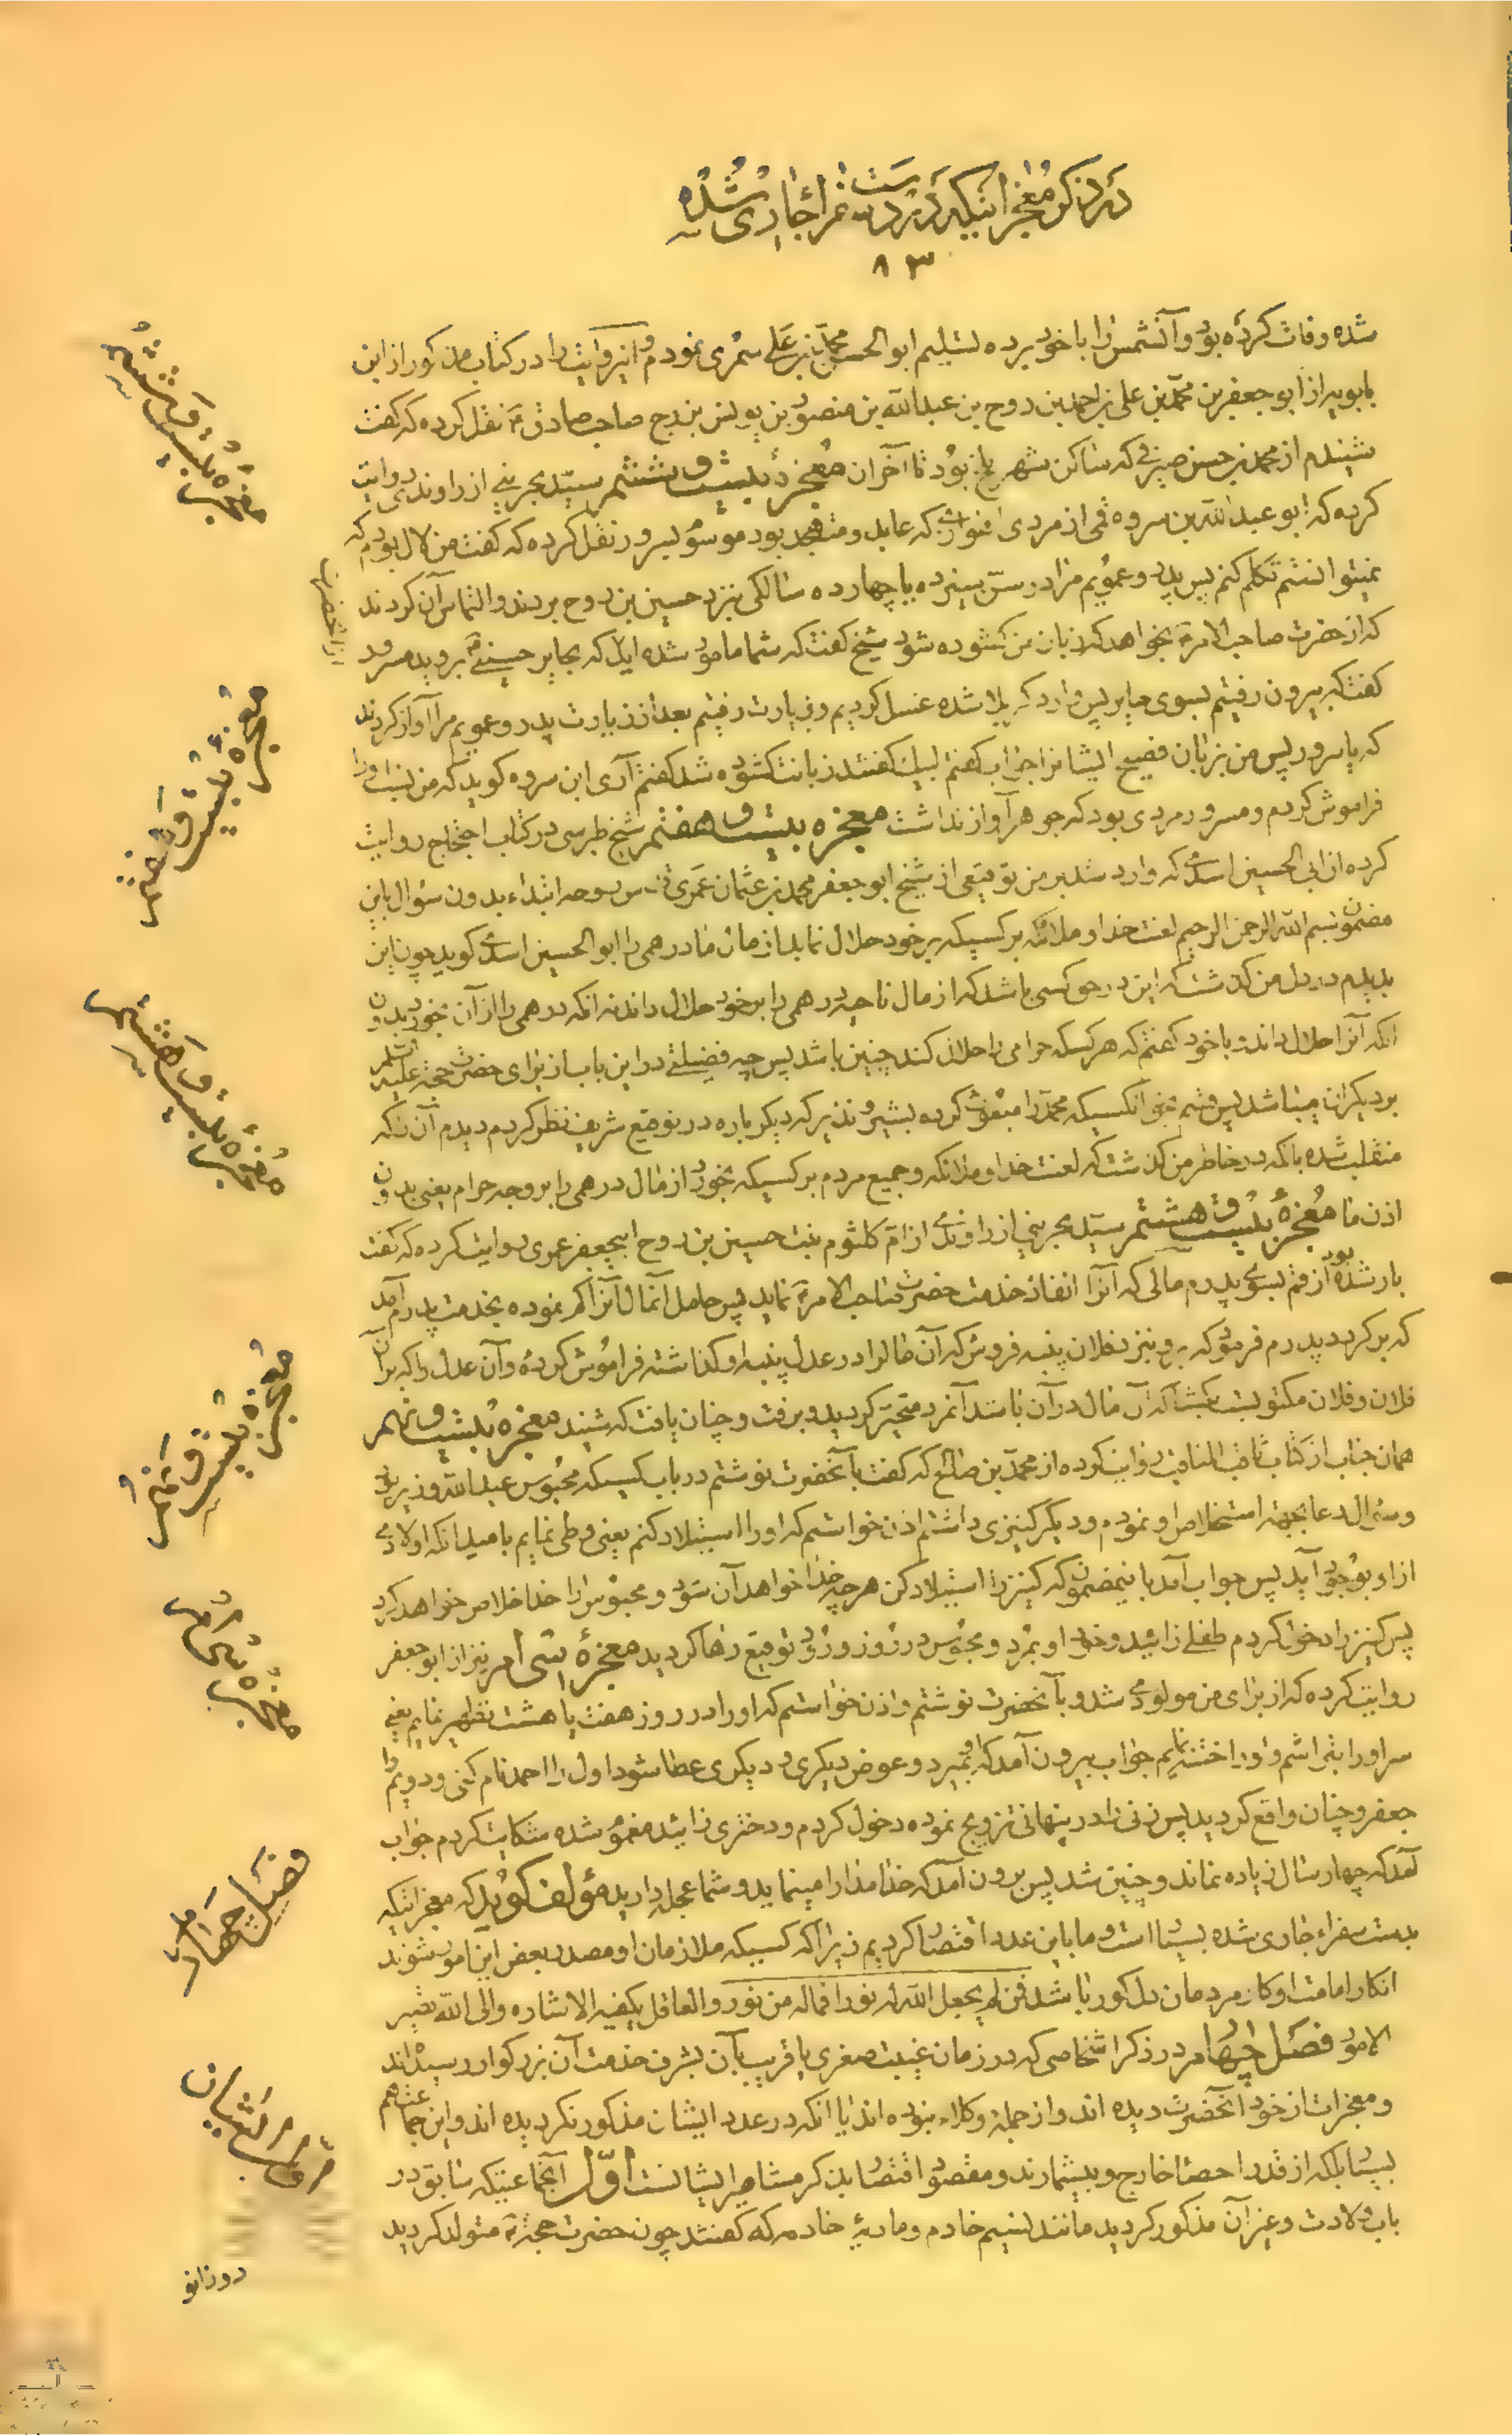 در ذکر معجزاتیکه در دست سفراء جاری شده
۸۳
شده وفات کرده بود و آنشمش را با خود برده تسلیم ابو الحسن محمد بن علی سمری نمودم و اینروایت را در کتاب مذکور از ابن
بابویه از ابو جعفر بن محمد بن علی بن احمد بن روح بن عبدالله بن منصور بن یونس بن برج صاحب صادق ع نقل کرده که گفت
شنیدم از محمد بن حسن صیرفی که ساکن شهر بلخ بود تا آخر آن معجزهٔ بیست و ششم سید بحرینی از راوندی روایت
کرده که ابو عبدالله بن سروه قمی از مردی که عابد و متهجد بود موسوم بسرور نقل کرده که گفت من لال بودم که
نمیتوانستم تکلم کنم پس پدر و عمویم مرا در سن سیزده یا چهارده سالگی بنزد حسین بن روح بردند و التماس آن کردند
که از حضرت صاحب الامر ع بخواهد که زبان من کشوده شود شیخ گفت که شما مامور شده اید که بحایر حسینی ع بروید سرور
گفت که بیرون رفتیم بسوی حایر پس وارد کربلا شده غسل کردیم و زیارت رفتیم بعد از زیارت پدر و عمویم مرا آواز کردند
که یا سرور پس من بزبان فصیح ایشانرا جواب گفتم لبیک گفتند زبانت کشوده شد گفتم آری ابن سروه کوید که من نسب او را
فراموش کردم و سرور مردی بود که جوهر آواز نداشت معجزه بیست و هفتم شیخ طبرسی در کتاب احتجاج روایت
کرده از ابی الحسین اسدی که وارد شد بر من توقیعی از شیخ ابو جعفر محمد بن عثمان عمری قدس روحه ابتداء بدون سؤال باین
مضمون بسم الله الرحمن الرحیم لعنت خدا و ملائکه بر کسیکه بر خود حلال نماید از مال ما درهمی را ابو الحسین اسدی کوید چون این
بدیدم در دل من کذشت که این در حق کسی باشد که از مال ناحیه درهمی را بر خود حلال داند نه انکه درهمی را از آن خورد بدون
انکه آنرا حلال داند و با خود گفتم که هر کسکه حرامی را حلال کند چنین باشد پس چه فضیلتی در این باب از برای حضرت حجة علیه السلم
بر دیکران میباشد پس قسم بحق آنکسیکه محمد را مبعوث کرده بشیر و نذیر که دیکر باره در توقیع شریف نظر کردم دیدم آن نکه
منقلب شده بانکه در خاطر من کذشت که لعنت خدا و ملائکه و جمیع مردم بر کسیکه بخورد از مال درهمی را بر وجه حرام یعنی بدون
اذن ما معجزهٔ بیست و هشتم سید بحرینی از راوندی از ام کلثوم بنت حسین بن روح ابیجعفر عمری روایت کرده که گفت
بار شده بود از قم بسوی پدرم مالی که آنرا انفاذ خدمت حضرت صاحب الامر ع نماید پس حامل آنمال آنرا کم نموده بخدمت پدرم آمد
که بر کردد پدرم فرمود که برو بنزد فلان پنبه فروش که آن مال را در عدل پنبه او کذاشته فراموش کردهٔ و آن عدل را که بر آن
فلان و فلان مکتوبست بکشا که آن مال در آن باشد آنمرد متحیر کردید و برفت و چنان یافت که شنید معجزه بیست و نهم
همان جناب از کتاب ثاقب المناقب روایت کرده از محمد بن صالح که گفت بآنحضرت نوشتم در باب کسیکه محبوس عبدالله وزیر بود
و سؤال دعا بجهة استخلاص او نمودم و دیکر کنیزی داشتم اذن خواستم که او را استیلاد کنم یعنی وطی نمایم بامید انکه اولادی
از او بوجود آید پس جواب آمد باینمضمون که کنیز را استیلاد کن هر چه خدا خواهد آن شود و محبوس را خدا خلاص خواهد کرد
پس کنیز را دخول کردم طفلی زائید و خود او بمرد و محبوس در روز ورود توقیع رها کردید معجزهٔ سی ام نیز از ابو جعفر
روایت کرده که از برای من مولودی شد و بآنحضرت نوشتم و اذن خواستم که او را در روز هفت یا هشت تطهیر نمایم یعنی
سر او را بتراشم و او را ختنه نمایم جواب بیرون آمد که او بمیرد و عوض دیکری و دیکری عطا شود اول را احمد نام کنی و دویم را
جعفر و چنان واقع کردید پس زنی را در پنهانی تزویج نموده دخول کردم و دختری زائید مغموم شده شکایت کردم جواب
آمد که چهار سال زیاده نماند و چنین شد پس برون آمد که خدا مدارا مینماید و شما عجله دارید مؤلف کوید که معجزاتیکه
بدست سفراء جاری شده بسیار است و ما باین عدد اقتصار کردیم زیرا که کسیکه ملازمان او مصدر بعض این امور شوند
انکار امامت او کار مردمان دل کور باشد فمن لم یجعل الله له نورا فماله من نور و العاقل یکفیه الاشاره و الی الله تصیر
الامور فصل چهارم در ذکر اشخاصی که در زمان غیبت صغری یا قریب بآن بشرف خدمت آن بزرکوار رسیده اند
و معجزات از خود آنحضرت دیده اند و از جملهٔ وکلاء نبوده اند یا انکه در عدد ایشان مذکور نکردیده اند و این جماعت هم
بسیار بلکه از قدر احصا خارج و بیشمارند و مقصود اقتصار بذکر مشاهیر ایشانست اول آنجماعتیکه سابق در
باب ولادت و غیر آن مذکور کردید مانند نسیم خادم و ماریهٔ خادمه که گفتند چون حضرت حجة ع متولد کردید
دو زانو
معجزه بیست و ششم
معجزه بیست و هفتم
معجزه بیست و هشتم
معجزه بیست و نهم
معجزه سی ام
فصل چهارم